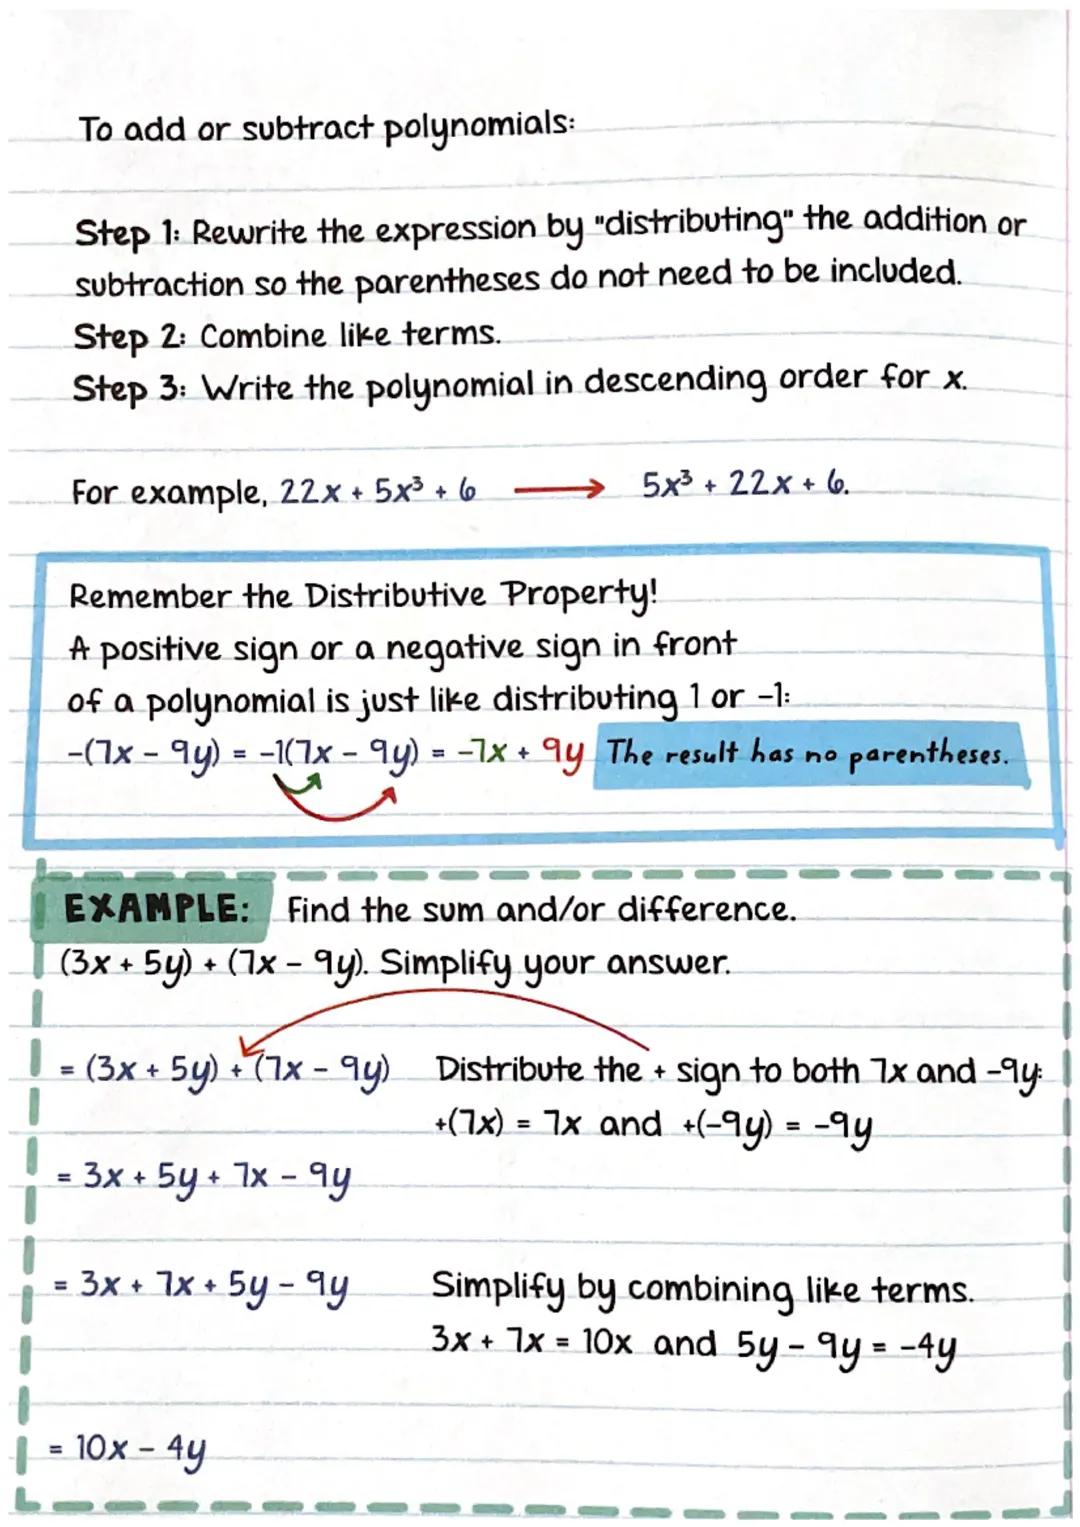 To add or subtract polynomials:
Step 1: Rewrite the expression by "distributing" the addition or
subtraction so the parentheses do not need to be included.
Step 2: Combine like terms.
Step 3: Write the polynomial in descending order for x.
For example, 22x + 5x³ + 6 → 5x³ + 22x + 6.
Remember the Distributive Property!
A positive sign or a negative sign in front
of a polynomial is just like distributing 1 or -1:
-(7x - 9y) = -1(7x - 9y) = -7x + 9y The result has no parentheses.
EXAMPLE: Find the sum and/or difference.
(3x + 5y) + (7x - 9y). Simplify your answer.
= (3x + 5y) + (7x - 9y) Distribute the + sign to both 7x and -9y:
+(7x) = 7x and +(-9y) = -9y
= 3x + 5y + 7x - 9y
= 3x + 7x + 5y - 9y Simplify by combining like terms.
3x + 7x = 10x and 5y - 9y = -4y
= 10x - 4y